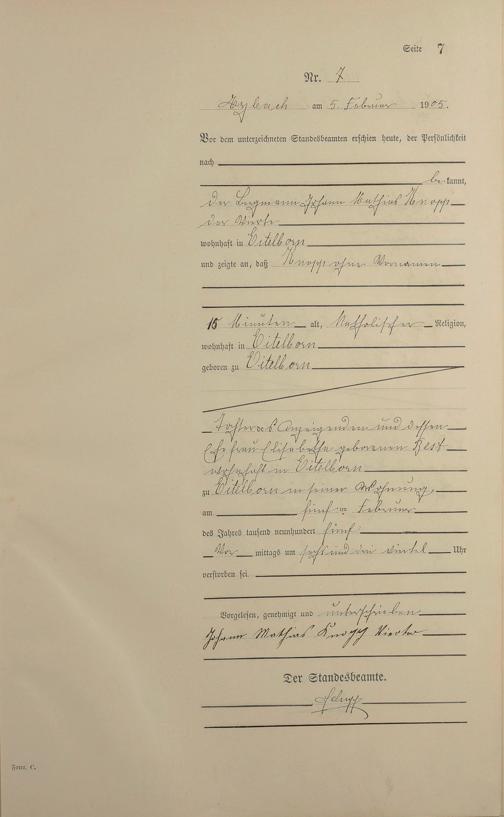 Seite 7
Nr. 7
Arzbach am 5. Februar 1905.
Vor dem unterzeichneten Standesbeamten erschien heute, der Persönlichkeit
nach
be kannt,
der Bergmann Johann Mathias Knopp
der Vierte
wohnhaft in Eitelborn
und zeigte an, daß Knopp ohne Vornamen
15 Minuten alt, Katholischer Religion,
wohnhaft in Eitelborn
geboren zu Eitelborn
Tochter des Anzeigenden und dessen
Ehefrau Elisabetha geborenen Best
wohnhaft in Eitelborn
zu Eitelborn in seiner Wohnung,
am fünften Februar
des Jahres tausend neunhundert fünf
Vor mittags um sechs und drei viertel Uhr
verstorben sei.
Vorgelesen, genehmigt und unterschrieben
Johann Mathias Knopp Vierter
Der Standesbeamte.
Form. C.